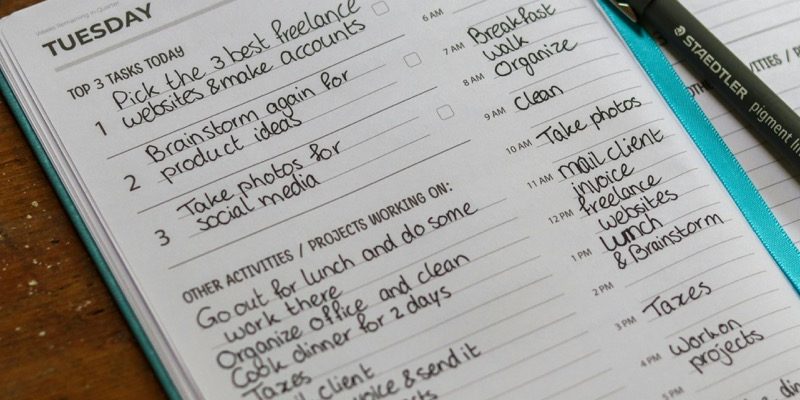 Weeks Remaining in Quarter
TUESDAY
TOP 3 TASKS TODAY
1 Pick the 3 best freelance
websites & make accounts
2 Brainstorm again for
product ideas
3 Take photos for
social media
OTHER ACTIVITIES / PROJECTS WORKING ON:
Go out for lunch and do some
work there
Organize office and clean
Cook dinner for 2 days
Taxes
client
invoice & send it
6 AM
7 AM Breakfast
walk
8 AM Organize
9 AM Clean
10 AM Take photos
11 AM mail client
invoice
12 PM freelance
websites
1 PM lunch
& Brainstorm
2 PM
3 PM Taxes
4 PM Work on
projects
5 PM
STAEDTLER
pigment
ACTIVITIES / PRO